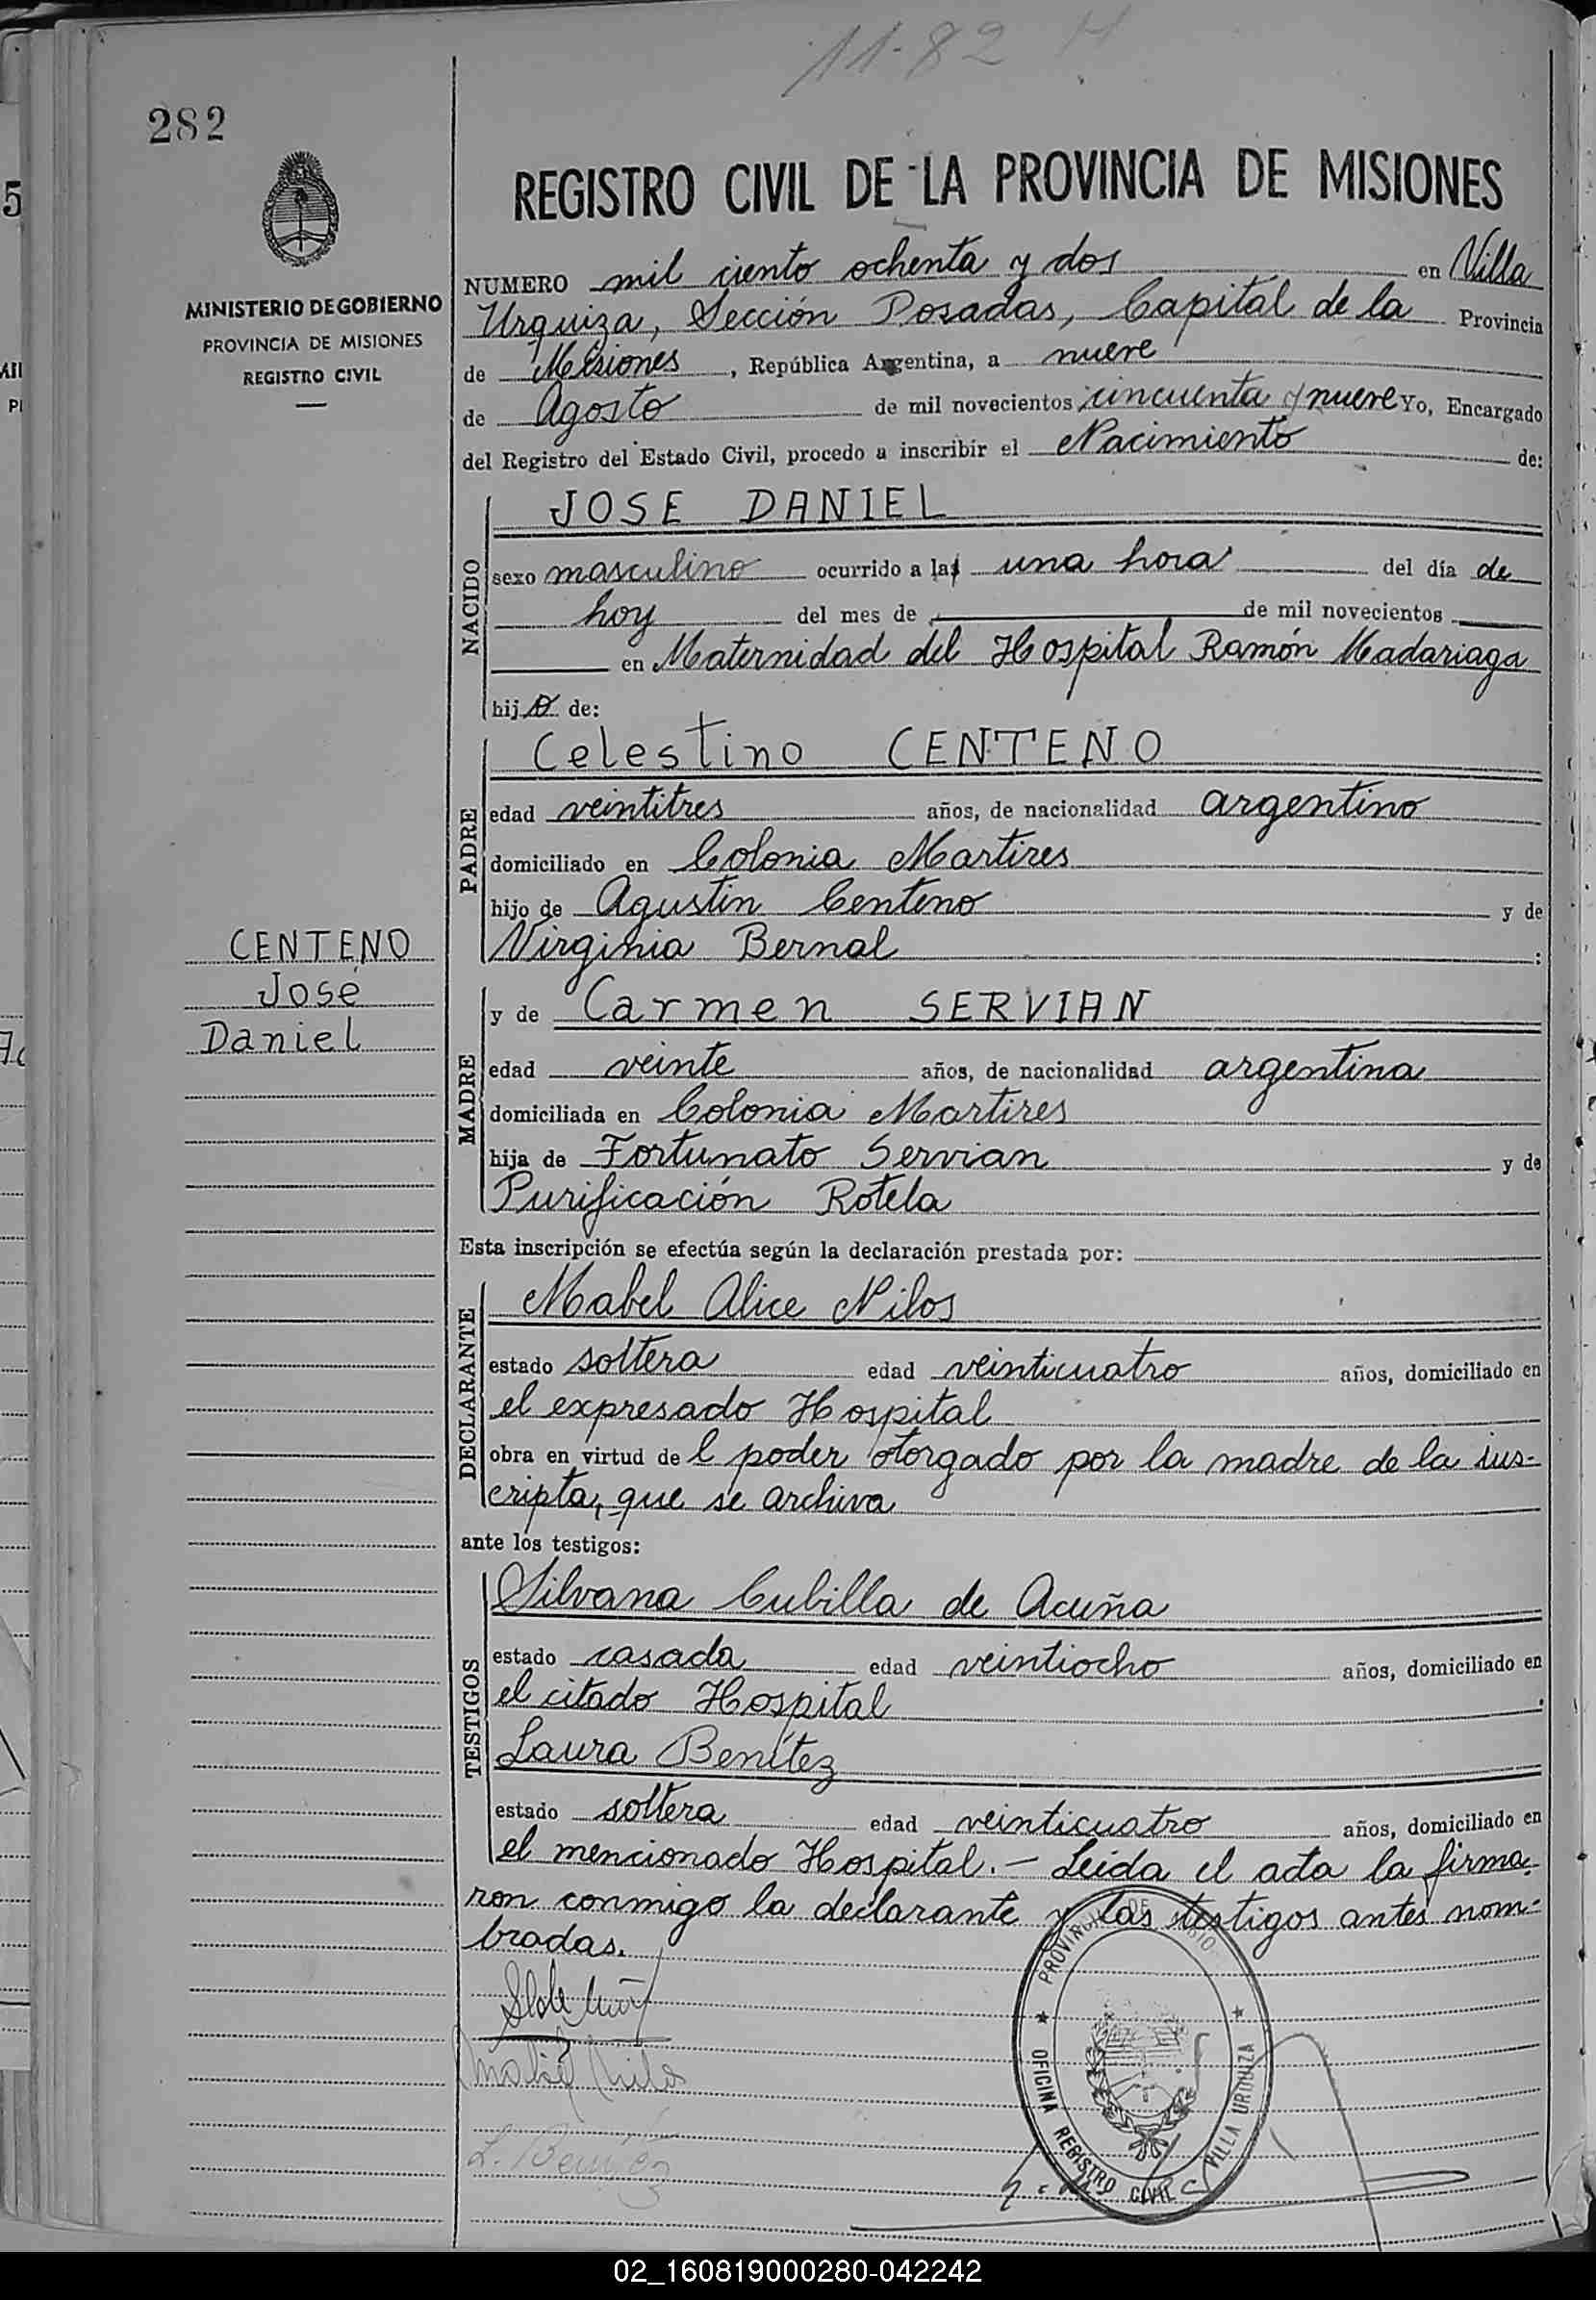 11-82 H
282
REGISTRO CIVIL DE LA PROVINCIA DE MISIONES
MINISTERIO DE GOBIERNO
PROVINCIA DE MISIONES
REGISTRO CIVIL
NUMERO mil ciento ochenta y dos en Villa
Urquiza, Sección Posadas, Capital de la Provincia
de Misiones, República Argentina, a nueve
de Agosto de mil novecientos cincuenta y nueve Yo, Encargado
del Registro del Estado Civil, procedo a inscribir el Nacimiento de:
NACIDO
JOSE DANIEL
sexo masculino ocurrido a la una hora del día de
hoy del mes de de mil novecientos
en Maternidad del Hospital Ramón Madariaga
hijo de:
PADRE
Celestino CENTENO
edad veintitres años, de nacionalidad argentino
domiciliado en Colonia Martires
hijo de Agustin Centeno y de
Virginia Bernal :
CENTENO
José
Daniel
MADRE
y de Carmen SERVIAN
edad veinte años, de nacionalidad argentina
domiciliada en Colonia Martires
hija de Fortunato Servian y de
Purificación Rotela
Esta inscripción se efectúa según la declaración prestada por:
DECLARANTE
Mabel Alice Nilos
estado soltera edad veinticuatro años, domiciliado en
el expresado Hospital
obra en virtud de l poder otorgado por la madre de la ins-
cripta, que se archiva
ante los testigos:
TESTIGOS
Silvana Cubilla de Acuña
estado casada edad veintiocho años, domiciliado en
el citado Hospital
Laura Benítez
estado soltera edad veinticuatro años, domiciliado en
el mencionado Hospital.- Leida el acta la firma-
ron conmigo la declarante y las testigos antes nom-
bradas.
Mabel Nilos
L. Benítez
PROVINCIA DE
OFICINA REGISTRO CIVIL VILLA URQUIZA
02_160819000280-042242